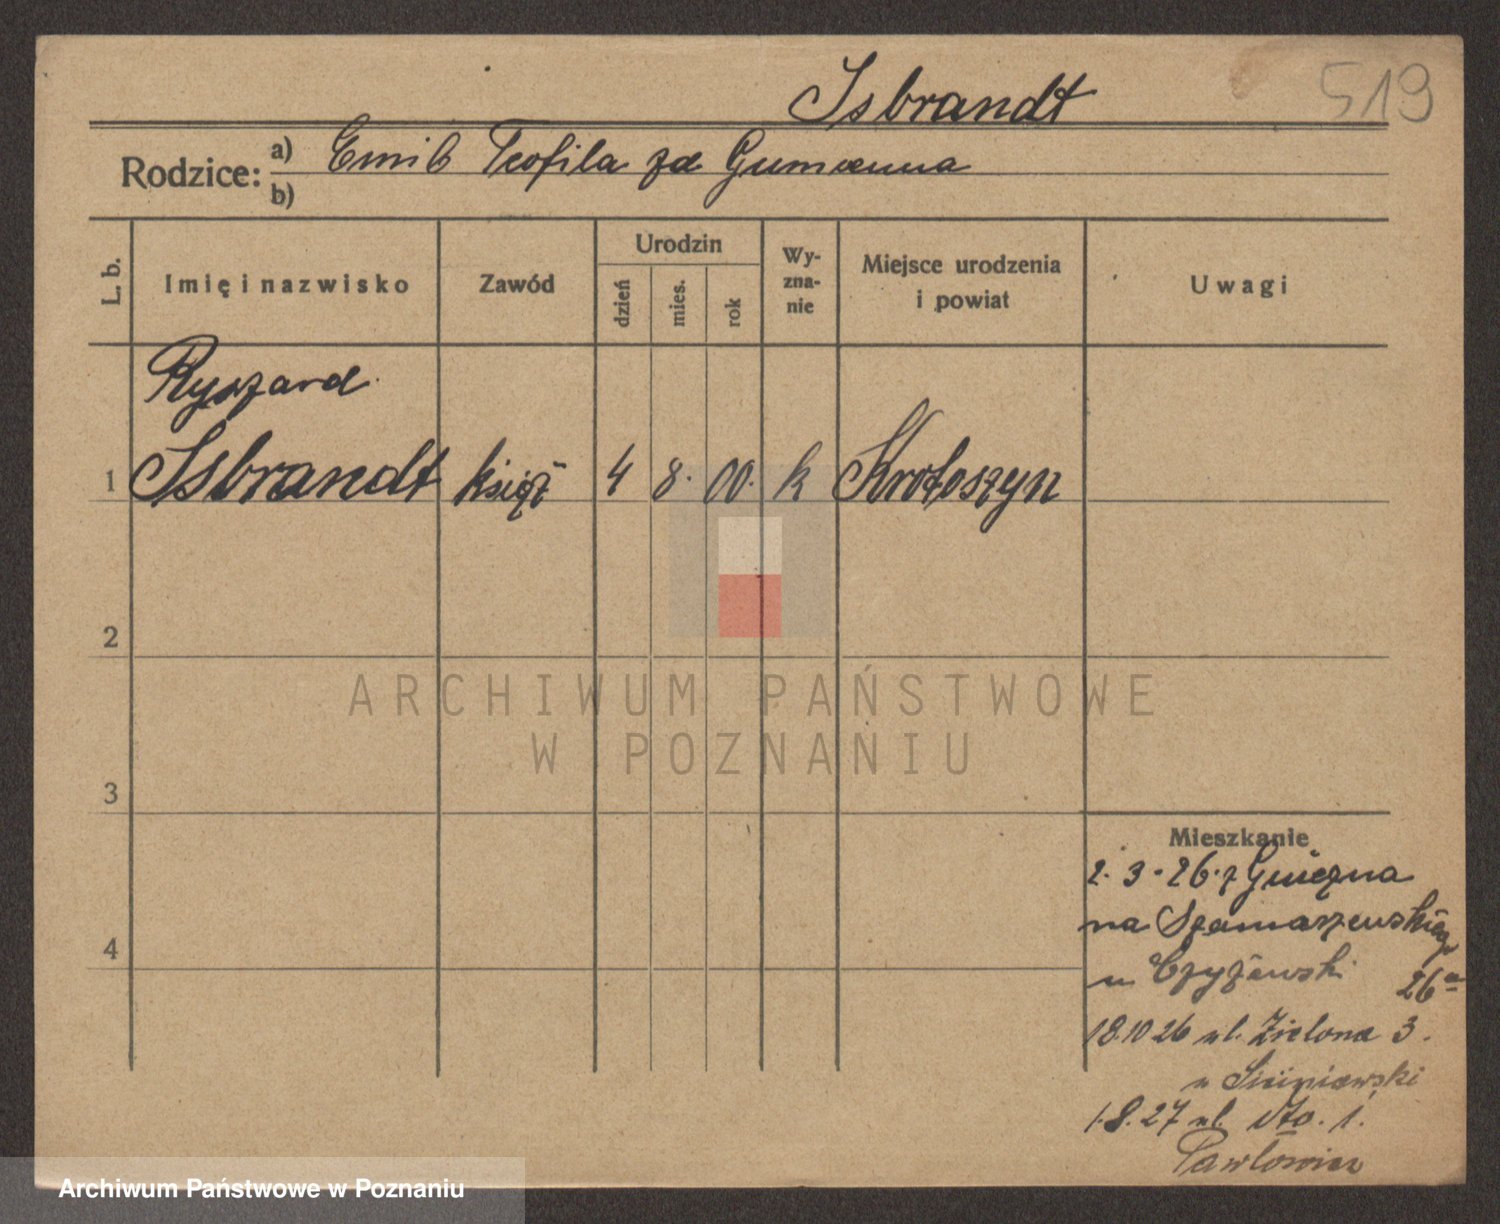 Isbrandt
519
Rodzice: a) Emil Teofila zd Gumanna
b)
L. b.
Imię i nazwisko
Zawód
Urodzin
dzień
mies.
rok
Wy-
zna-
nie
Miejsce urodzenia
i powiat
Uwagi
Ryszard
1 Isbrandt ksiądz 4 8. 00. k Krotoszyn
2
3
4
ARCHIWUM PAŃSTWOWE
W POZNANIU
Mieszkanie
2. 3. 26. z Gniezna
na Szamarzewskiego
u Czyżewski 26a
18.10 26 ul. Zielona 3.
u
1.8.27 ul. dto. 1.
Archiwum Państwowe w Poznaniu